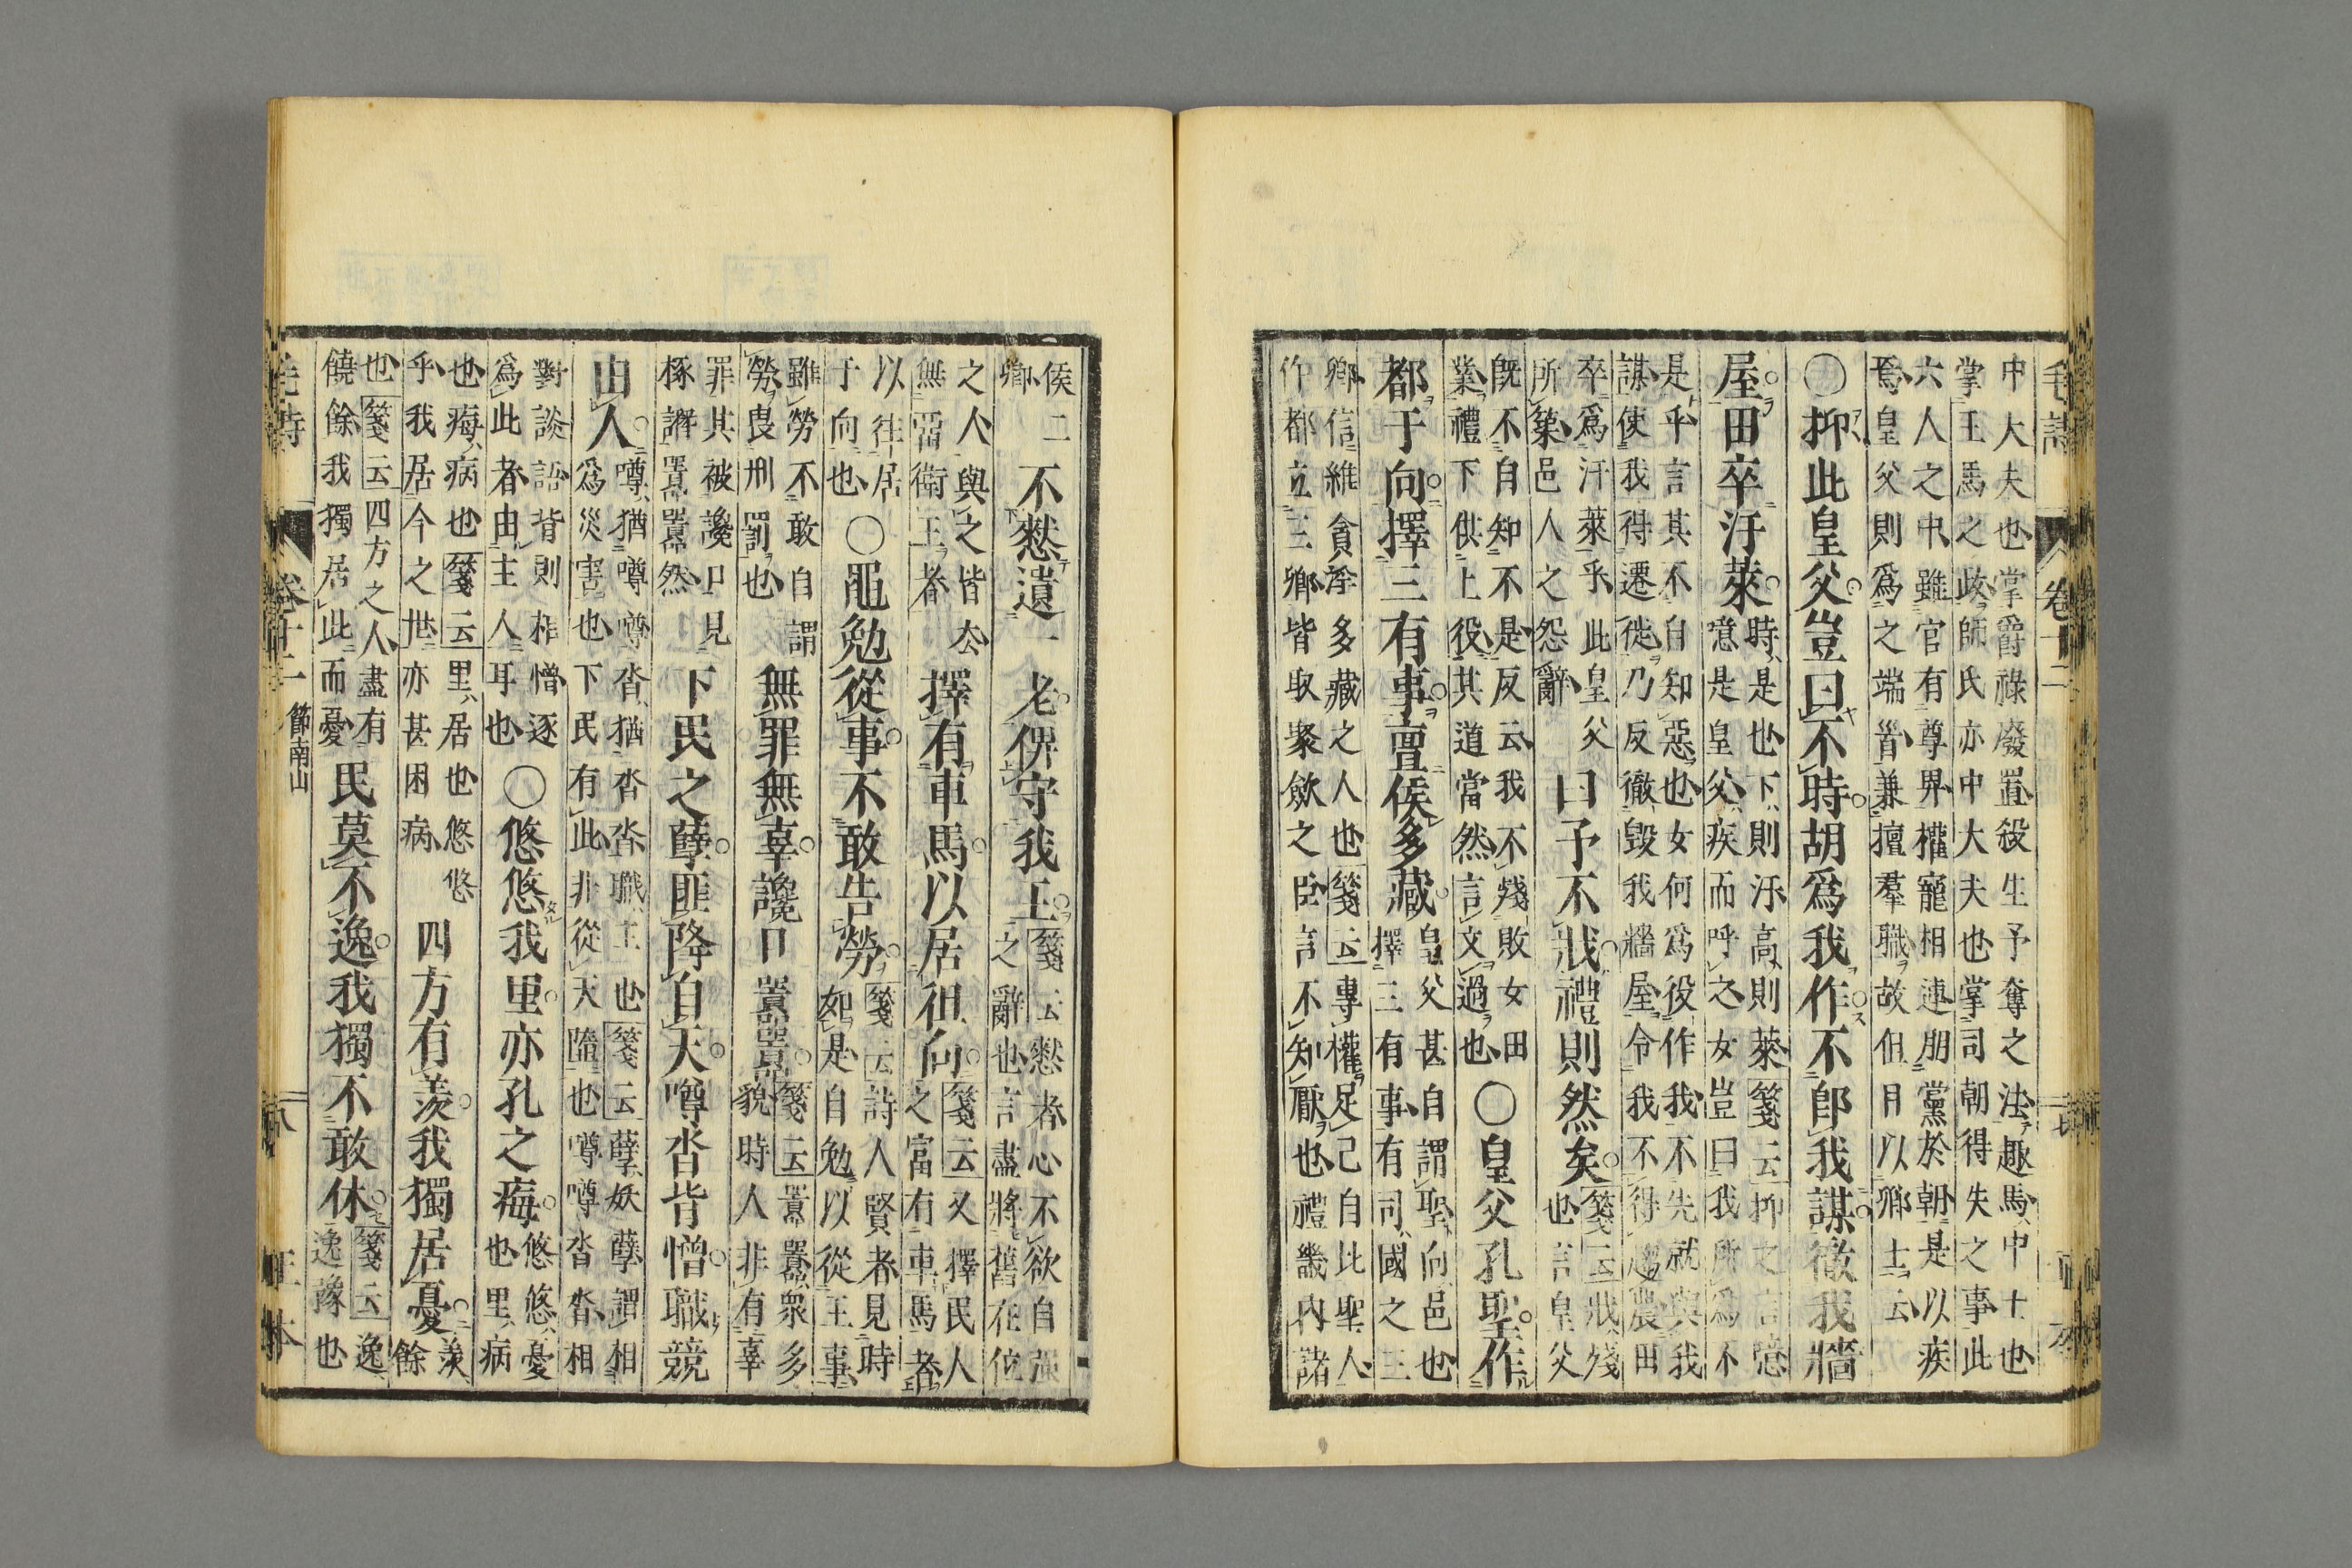 毛詩 卷十二
中大夫也掌爵祿廢置殺生予奪之法趣馬中士也
掌王馬之政師氏亦中大夫也掌司朝得失之事此
六人之中雖官有尊卑權寵相連朋黨於朝是以疾
焉皇父則爲之端首兼擅羣職故但目以卿士云
〇抑此皇父豈曰不時胡爲我作不卽我謀徹我牆
屋田卒汙萊時是也下則汙高則萊箋云抑之言噫
噫是皇父疾而呼之女豈曰我所爲不
是乎言其不自知惡也女何爲役作我不先就與我
謀使我得遷徙乃反徹毀我牆屋令我不得趨農田
卒爲汙萊乎此皇父
所築邑人之怨辭
曰予不戕禮則然矣箋云戕殘
也言皇父
旣不自知不是反云我不殘敗女田
業禮下供上役其道當然言文過也
〇皇父孔聖作
都于向擇三有事亶侯多藏皇父甚自謂聖向邑也
擇三有事有司國之三
卿信維貪淫多藏之人也箋云專權足己自比聖人
作都立三卿皆取聚斂之臣言不知厭也禮畿內諸
侯二
卿
不憖遺一老俾守我王箋云憖者心不欲自强
之辭也言盡將舊在位
之人與之皆去
無留衛王者
擇有車馬以居徂向箋云又擇民人
之富有車馬者
以往居
于向也
〇黽勉從事不敢告勞箋云詩人賢者見時
如是自勉以從王事
雖勞不敢自謂
勞畏刑罰也
無罪無辜讒口囂囂箋云囂囂衆多
貌時人非有辜
罪其被讒口見
椓譖囂囂然
下民之孽匪降自天噂沓背憎職競
由人噂猶噂噂沓猶沓沓職主也箋云孽妖孽謂相
爲災害也下民有此非從天墮也噂噂沓沓相
對談語背則相憎逐
爲此者由主人耳也
〇悠悠我里亦孔之痗悠悠憂
也里病
也痗病也箋云里居也悠悠
乎我居今之世亦甚困病
四方有羨我獨居憂羨
餘
也箋云四方之人盡有
饒餘我獨居此而憂
民莫不逸我獨不敢休箋云逸
逸豫也
毛詩 卷十二 節南山 八